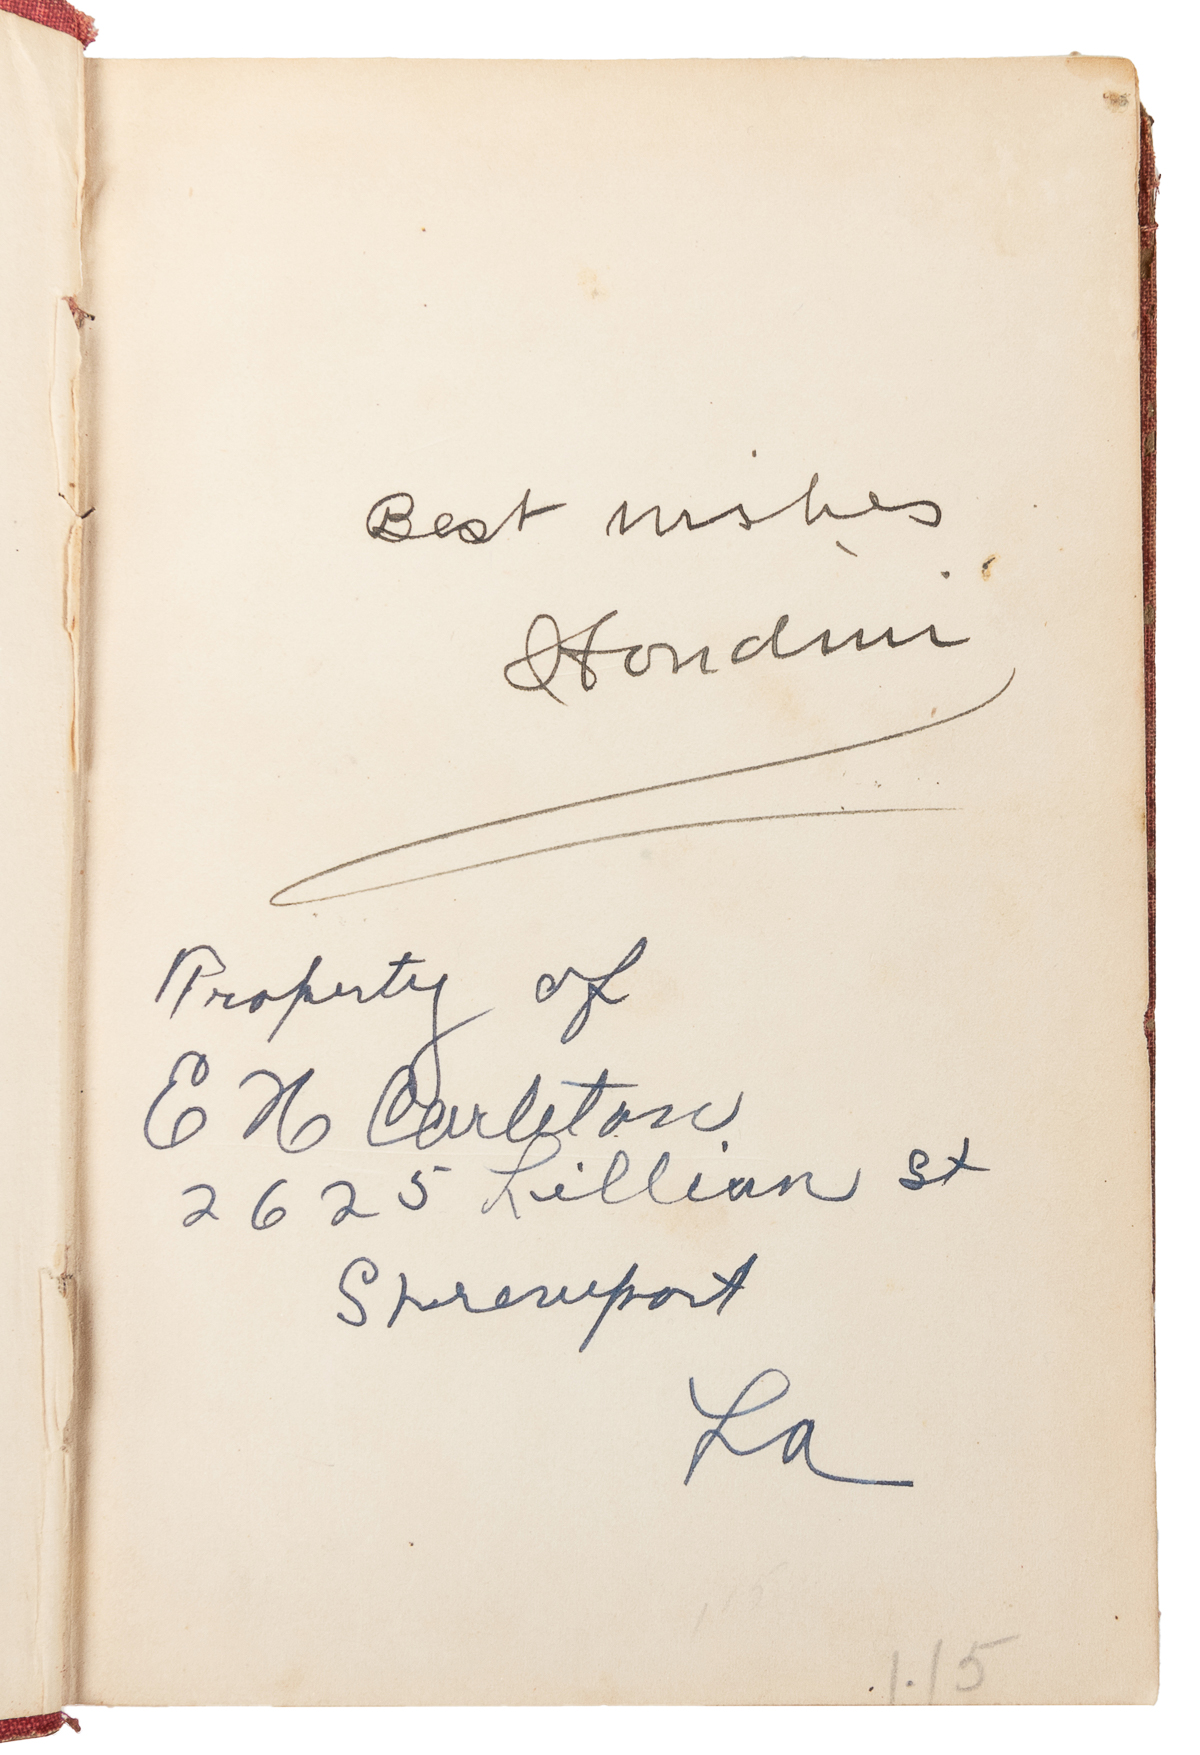 Best wishes
Houdini
Property of
E H Carleton
2625 Lillian St
Shreveport
La
1.15